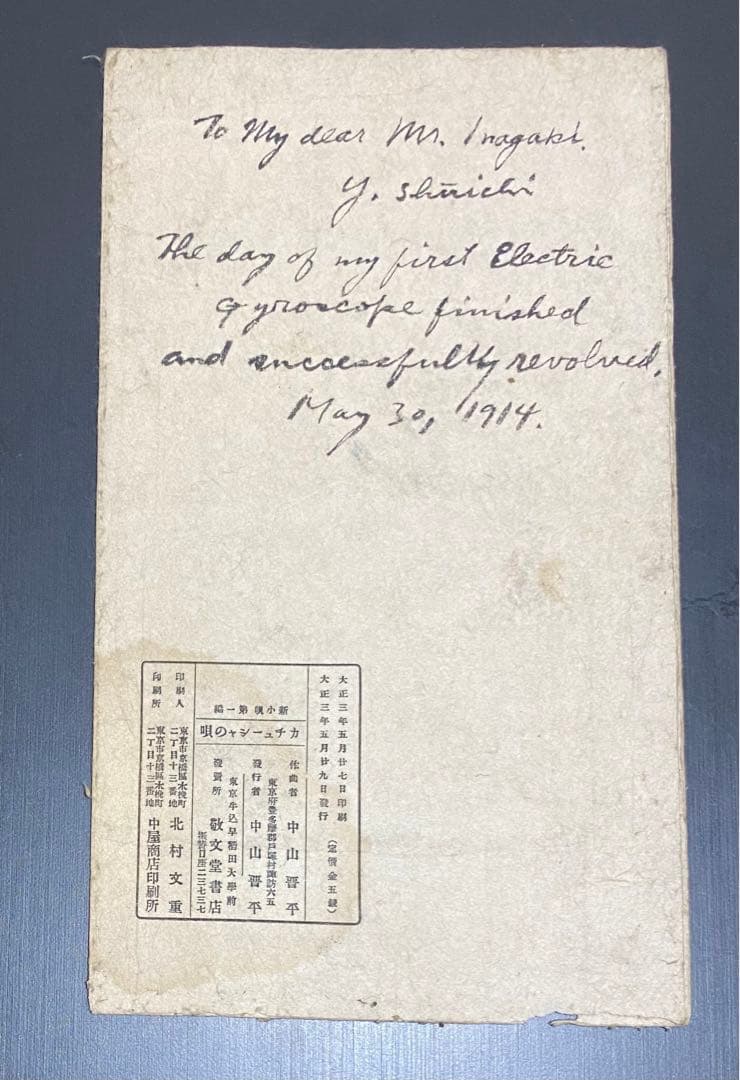 To My dear Mr. Inagaki.
Y. Shūichi
The day of my first Electric
Gyroscope finished
and successfully revolved.
May 30, 1914.
大正三年五月廿七日印刷
大正三年五月廿九日發行
（定價金五錢）
作曲者 中山晋平
東京府豊多摩郡戸塚村諏訪六五
發行者 中山晋平
東京牛込早稻田大學前
發賣所 敬文堂書店
振替口座二三七三七
新小唄 第一編
カチューシャの唄
東京市京橋區木挽町
二丁目十三番地
印刷人 北村文重
東京市京橋區木挽町
二丁目十三番地
印刷所 中屋商店印刷所